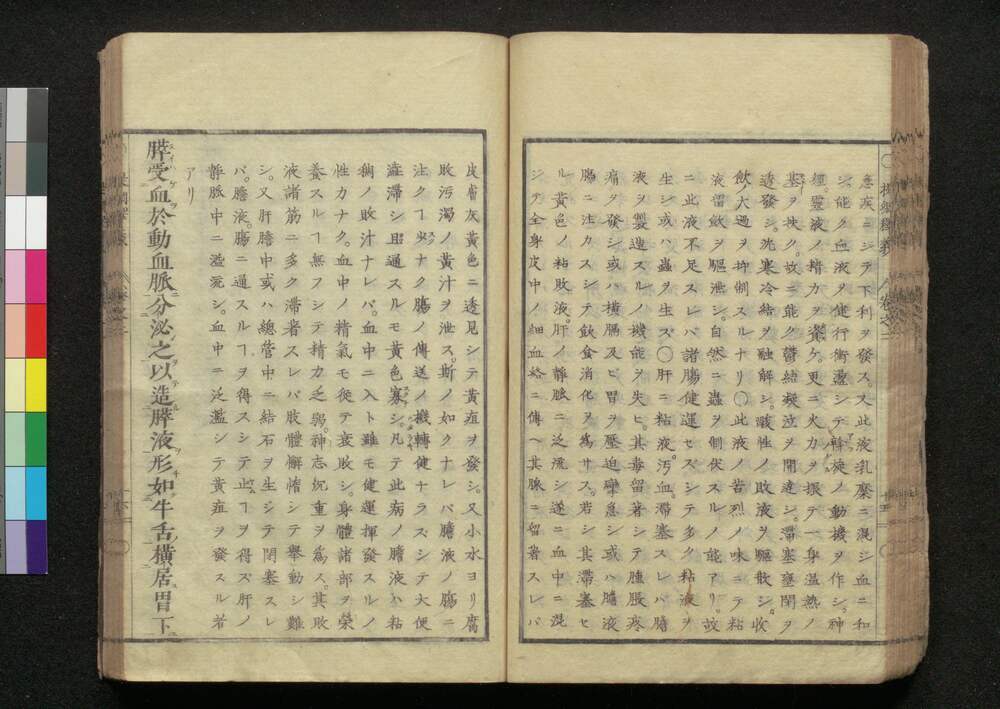 急疾ニシテ下利ヲ發ス。又此液乳糜ニ混シ血ニ和
シ。能ク血液ヲ健行衝盪シテ斡旋ノ動擾ヲ作シ。神
經。靈液ノ精力ヲ資ケ。更ニ火力ヲ挾テ一身温熱ノ
基ヲ扶ク。故ニ能ク鬱結凝泣ヲ開達シ。滯塞壅閉ヲ
透發シ。沈寒冷結ヲ融解シ。酸性ノ敗液ヲ驅散シ。收
飲ノ大過ヲ抑制スルナリ○此液ノ苦烈ノ味ニテ粘
液留飲ヲ驅泄シ。自然ニ蟲ヲ制伏スルノ能アリ。故
ニ此液不足スレバ諸腸健運セズシテ多ク粘液ヲ
生シ或ハ蟲ヲ生ズ○肝ニ粘液。汚血。滯塞スレバ膽
液ヲ製造スルノ機能ヲ失ヒ。其毒留著シテ腫脹疼
痛ヲ發シ或ハ橫膈及ヒ胃ヲ壓迫攣急シ或ハ膽液
腸ニ注カズシテ飲食消化ヲ爲サス。若シ其滯塞セ
ル黄色ノ粘敗液。肝ノ靜脈ニ泛流シ遂ニ血中ニ混
シテ全身皮中ノ細血絡ニ傳ヘ其腺ニ留著スレバ
皮膚灰黄色ニ透見シテ黄疸ヲ發シ。又小水ヨリ腐
敗汚濁ノ黄汁ヲ泄ス。斯ノ如クナレバ膽液ノ腸ニ
注クヿ少ナク腸ノ傳送ノ機轉健ナラズシテ大便
澁滯シ且通スルモ黄色寡シ。凡テ此病ノ膽液ハ粘
稠ノ敗汁ナレバ。血中ニ入ト雖モ健運揮發スルノ
性カナク。血中ノ精氣モ從テ衰敗シ。身體諸部ヲ榮
養スルヿ無フシテ精力乏弱。神志沉重ヲ爲ス。其敗
液諸筋ニ多ク滯著スレバ肢體懈惰シテ擧動シ難
シ。又肝膽中或ハ總管中ニ結石ヲ生シテ閉塞スレ
バ。膽液。腸ニ通スルヿヲ得スシテ止ヿヲ得ズ肝ノ
靜脈中ニ溢流シ。血中ニ泛濫シテ黄疸ヲ發スル者
アリ
膵受血於動血脈分泌之以造膵液形如牛舌橫居胃下